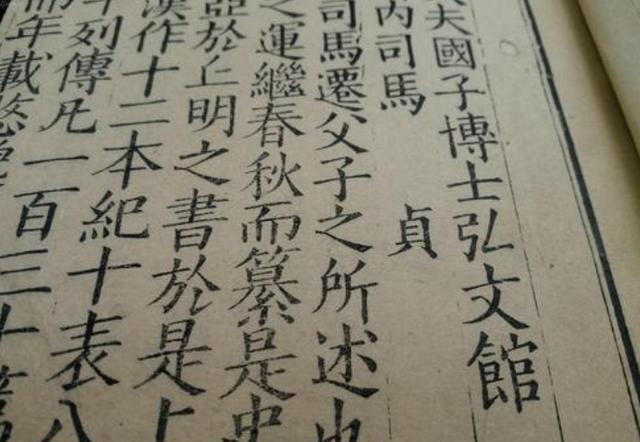 夫國子博士弘文館
內司馬 貞
司馬遷父子之所述也
之運繼春秋而纂是史
亞於丘明之書於是上
漢作十二本紀十表八
十列傳凡一百三十篇
年載悠